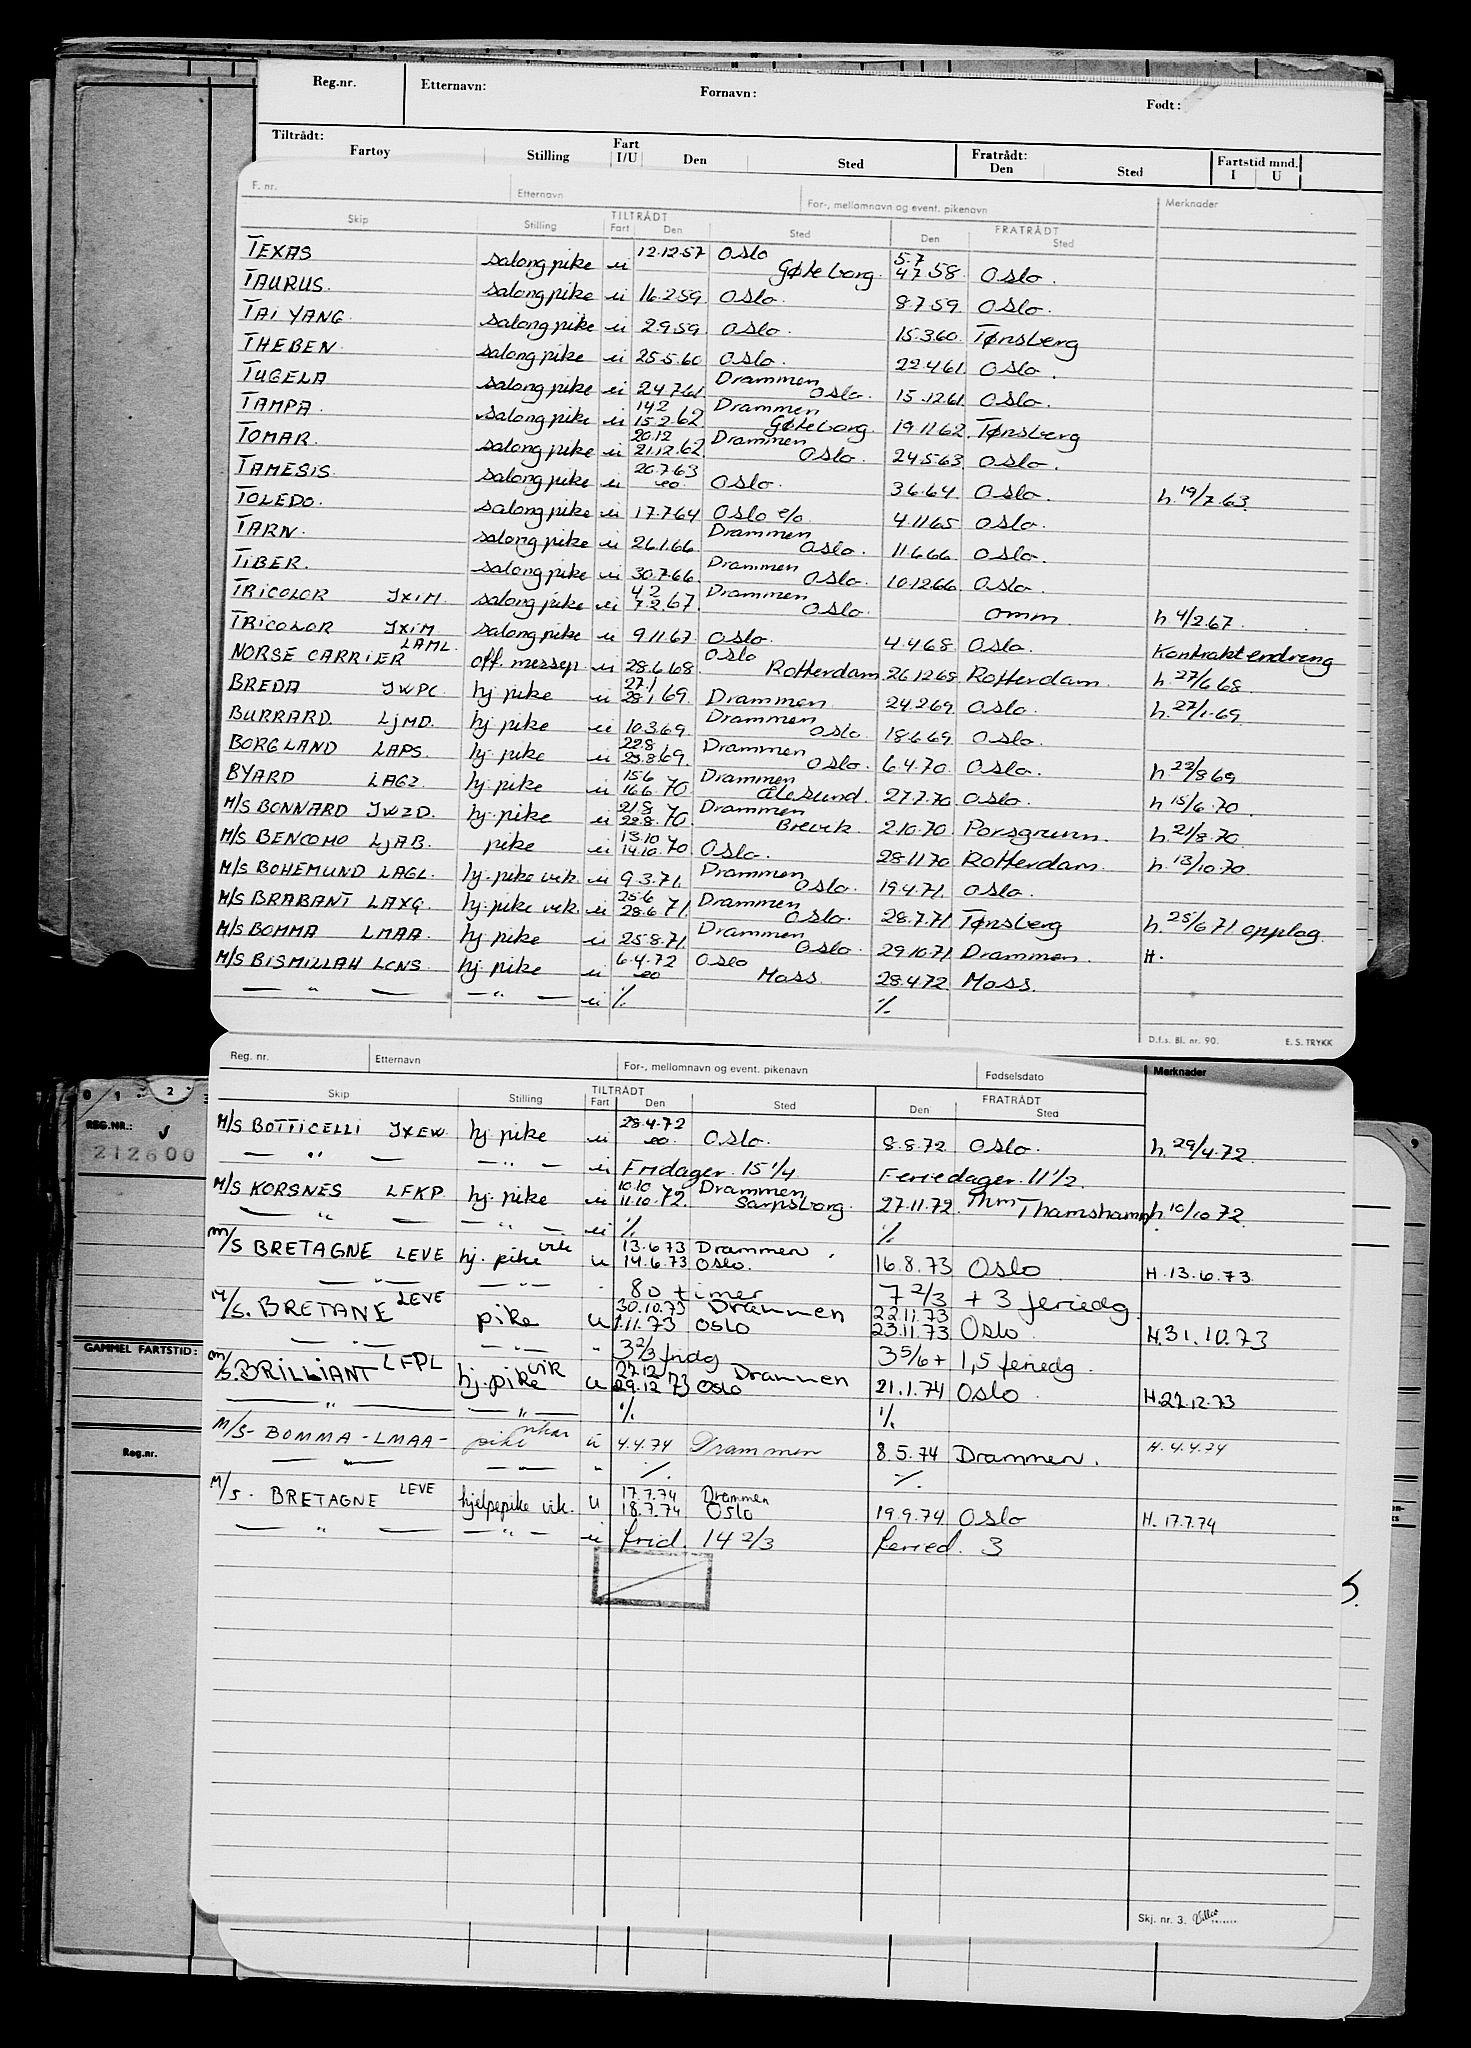 Reg.nr. Etternavn: Fornavn: Født:
Tiltrådt: Fartøy Stilling Fart I/U Den Sted Fratrådt: Den Sted Fartstid mnd. I U
F. nr. Etternavn For-, mellomnavn og event. pikenavn Merknader
Skip Stilling TILTRÅDT Fart Den Sted FRATRÅDT Den Sted
TEXAS salongpike u 12.12.57 Oslo Gøteborg 5.7 4.7.58 Oslo.
TAURUS. salongpike u 16.2.59 Oslo. 8.7.59 Oslo.
TAI YANG. salongpike u 2.9.59 Oslo. 15.3.60 Tønsberg
THEBEN. salongpike u 25.5.60 Oslo. 22.4.61 Oslo.
TUGELA salongpike u 24.7.61. Drammen Oslo. 15.12.61. Oslo.
TAMPA. salongpike u 14.2 15.2.62 Drammen Gøteborg. 19.11.62. Tønsberg
TOMAR. salongpike u 20.12 21.12.62. Drammen Oslo. 24.5.63. Oslo.
TAMESIS. salongpike u 20.7.63 eo. Oslo. 3.6.64. Oslo. h. 19/7.63.
TOLEDO. salongpike u 17.7.64 Oslo e/o. 4.11.65 Oslo.
TARN. salongpike u 26.1.66. Drammen Oslo. 11.6.66. Oslo.
TIBER. salongpike u 30.7.66. Drammen Oslo. 10.12.66. Oslo.
TRICOLOR JXIM. salongpike u 4.2 7.2.67. Drammen Oslo. omm. h 4/2.67.
TRICOLOR JXIM salongpike u 9.11.67. Oslo. 4.4.68 Oslo. Kontraktendreng
NORSE CARRIER LAML. off. messep. u 28.6.68. Oslo Rotterdam. 26.12.68. Rotterdam. h. 27/6 68.
BREDA JWPC. hj. pike u 27.1 28.1.69. Drammen 24.2.69. Oslo. h. 27/1.69
BURRARD. LJMD. hj. pike u 10.3.69. Drammen Oslo. 18.6.69 Oslo.
BORGLAND LAPS. hj. pike u 22.8 23.8.69. Drammen Oslo. 6.4.70. Oslo. h 22/8 69
BYARD LAGZ. hj. pike u 15.6 16.6.70 Drammen Ålesund. 27.7.70 Oslo. h 15/6.70.
M/S BONNARD JWZD. hj. pike u 21.8 22.8.70. Drammen Brevik. 2.10.70. Porsgrunn. h. 21/8.70.
M/S BENCOMO LJAB. pike u 13.10 14.10.70. Oslo. 28.11.70 Rotterdam. h. 13/10.70.
M/S BOHEMUND LAGL. hj. pike vik. u 9.3.71. Drammen Oslo. 19.4.71. Oslo.
M/S BRABANT LAXG. hj. pike vik. u 25.6 28.6.71. Drammen Oslo. 28.7.71 Tønsberg h. 25/6 71 opplag.
M/S BOMMA LMAA. hj. pike u 25.8.71. Drammen Oslo. 29.10.71. Drammen. H.
M/S BISMILLAH LCNS. hj. pike u 6.4.72 eo Oslo Moss. 28.4.72 Moss.
— " — — " — u %. %.
D.f.s. Bl. nr. 90. E. S. TRYKK
Reg. nr. Etternavn For-, mellomnavn og event. pikenavn Fødselsdato Merknader
Skip Stilling TILTRÅDT Fart Den Sted FRATRÅDT Den Sted
0 1 2 3
REG.NR.:
212600
M/S BOTTICELLI JXEW. hj. pike u 28.4.72 eo. Oslo. 8.8.72 Oslo. h. 29/4.72.
— " — — " — u Fridager. 15 1/4 Feriedager. 11 1/2.
M/S KORSNES LFKP. hj. pike u 10.10 11.10.72. Drammen Sarpsborg. 27.11.72. Thamshamn h. 10/10 72.
— " — — " — u %. %.
M/S BRETAGNE LEVE hj. pike vik u 13.6.73 14.6.73 Drammen. Oslo. 16.8.73 Oslo H. 13.6.73.
— " — — " — 80 timer 7 2/3 + 3 feriedg.
M/S. BRETANE LEVE pike u 30.10.73 1.11.73 Drammen Oslo 22.11.73 23.11.73 Oslo. H.31.10.73
— " — — " — " 3 2/3 fridg 3 5/6 + 1,5 feriedg.
GAMMEL FARTSTID:
M/S. BRILLIANT LFPL hj. pike VIK u 27.12 29.12.73 Drammen Oslo 21.1.74 Oslo. H.27.12.73
— " — — " — %. %.
M/S - BOMMA - LMAA - pike u 4.4.74 Drammen 8.5.74 Drammen. H. 4.4.74
Reg.nr.
— " — — " — " %. %.
M/S. BRETAGNE LEVE hjelpepike vik. u 17.7.74 18.7.74 Drammen Oslo 19.9.74 Oslo H. 17.7.74
— " — — " — u frid. 14 2/3 feried. 3
Skj. nr. 3.